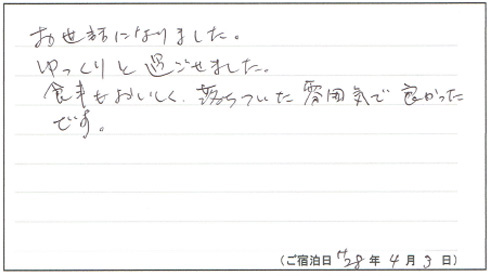 お世話になりました。
ゆっくりと過ごせました。
食事もおいしく、落ちついた雰囲気で良かった
です。
(ご宿泊日 H28 年 4 月 3 日)